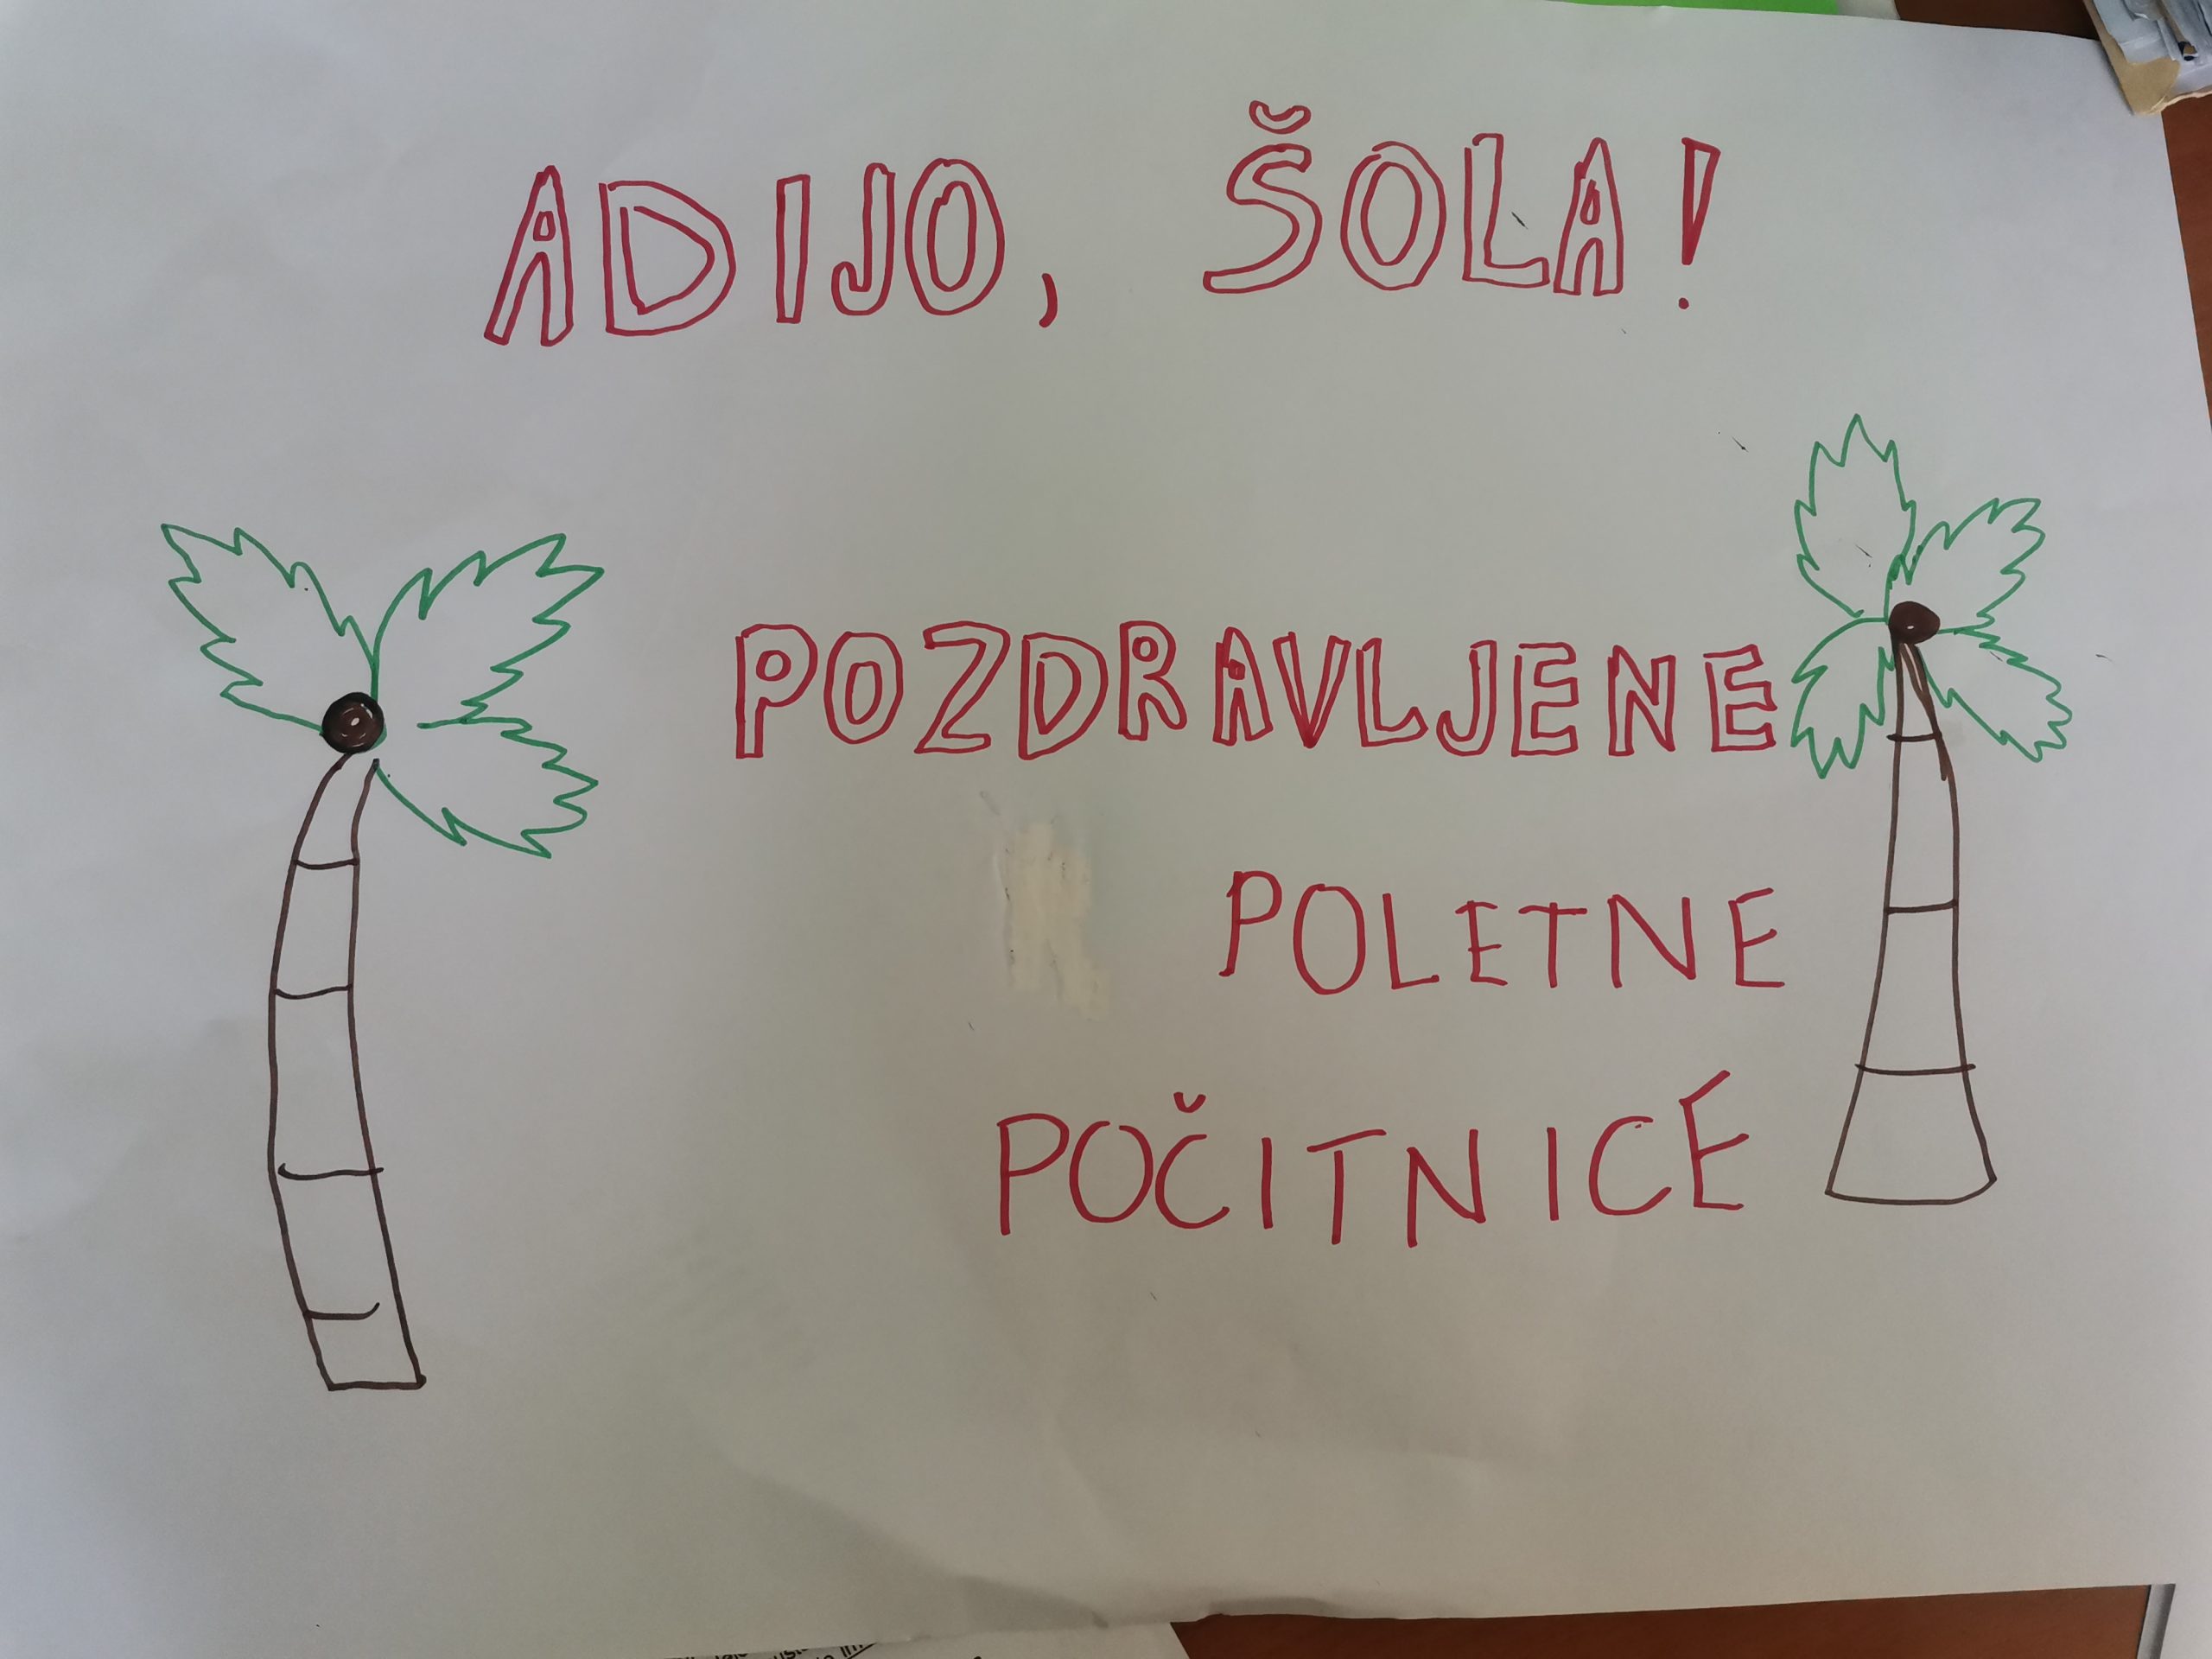 ADIJO, ŠOLA!
POZDRAVLJENE
POLETNE
POČITNICE